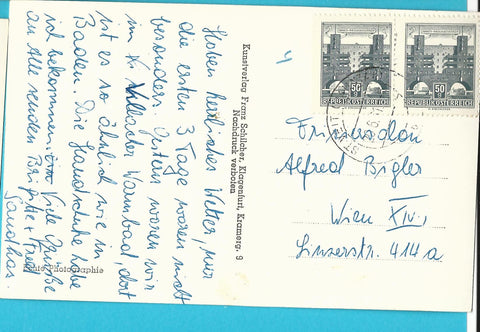 Haben herrliches Wetter, nur
die ersten 3 Tage waren nicht
besonders. Gestern waren wir
im Villacher Warmbad, dort
ist es so ähnlich wie in
Baden. Die Handschuhe habe
ich bekommen. Viele Grüße
an Alle senden Brigitte + Fred
Echte Photographie
Kunstverlag Franz Schilcher, Klagenfurt, Kramerg. 9
Nachdruck verboten
50 g
REPUBLIK ÖSTERREICH
50 g
REPUBLIK ÖSTERREICH
Alfred Bigler
Wien XIV.,
Linzerstr. 414a